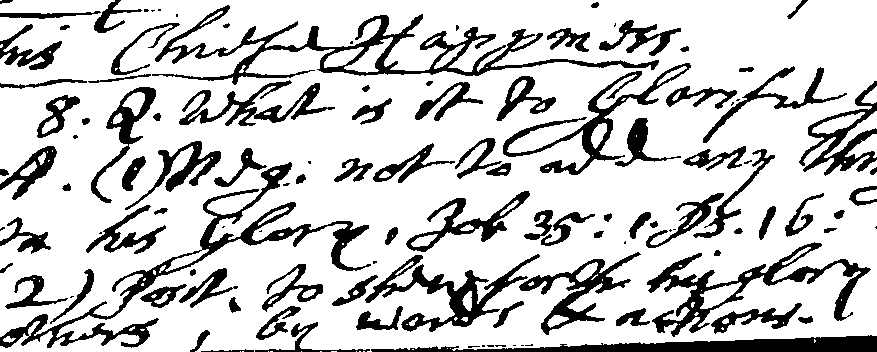 his Chiefest Happiness.
8. Q. What is it to Glorifie
A. (1) Neg. not to add any thin
his Glory, Job 35: Ps. 16:
2) Posit. to shew forth his glory
others, by words & actions.